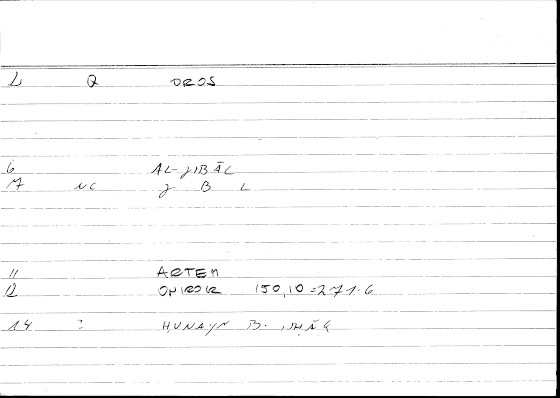 1 Q OROS
6 AL-JIBĀL
7 NC J B L
11 ARTEM
12 ONIROCR 150,10 = 271.6
14 : ḤUNAYN B. ISḤĀQ